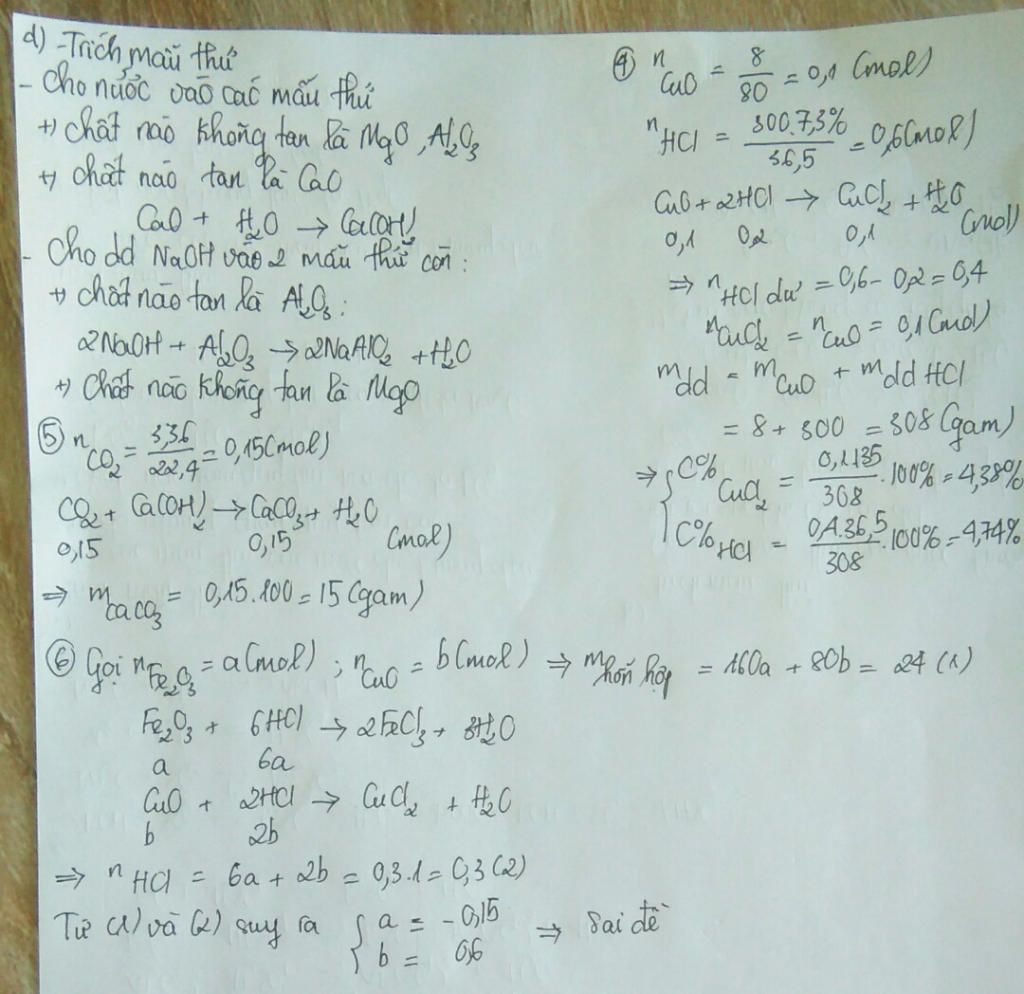 d) - Trích mẫu thử
- Cho nước vào các mẫu thử
+) chất nào không tan là MgO, Al₂O₃
+) chất nào tan là CaO
CaO + H₂O → Ca(OH)₂
- Cho dd NaOH vào 2 mẫu thử còn :
+) chất nào tan là Al₂O₃ :
2NaOH + Al₂O₃ → 2NaAlO₂ + H₂O
+) Chất nào không tan là MgO
⑤ nCO₂ = 3,36/22,4 = 0,15 (mol)
CO₂ + Ca(OH)₂ → CaCO₃ + H₂O
0,15 0,15 (mol)
⇒ mCaCO₃ = 0,15.100 = 15 (gam)
④ nCuO = 8/80 = 0,1 (mol)
nHCl = 300.7,3%/36,5 = 0,6 (mol)
CuO + 2HCl → CuCl₂ + H₂O
0,1 0,2 0,1 (mol)
⇒ nHCl dư = 0,6 - 0,2 = 0,4
nCuCl₂ = nCuO = 0,1 (mol)
mdd = mCuO + mdd HCl
= 8 + 300 = 308 (gam)
⇒ { C% CuCl₂ = 0,1.135/308 .100% = 4,38%
C% HCl = 0,4.36,5/308 .100% = 4,74%
⑥ Gọi nFe₂O₃ = a (mol) ; nCuO = b (mol) ⇒ mhỗn hợp = 160a + 80b = 24 (1)
Fe₂O₃ + 6HCl → 2FeCl₃ + 3H₂O
a 6a
CuO + 2HCl → CuCl₂ + H₂O
b 2b
⇒ nHCl = 6a + 2b = 0,3.1 = 0,3 (2)
Từ (1) và (2) suy ra { a = -0,15 ⇒ Sai đề
b = 0,6